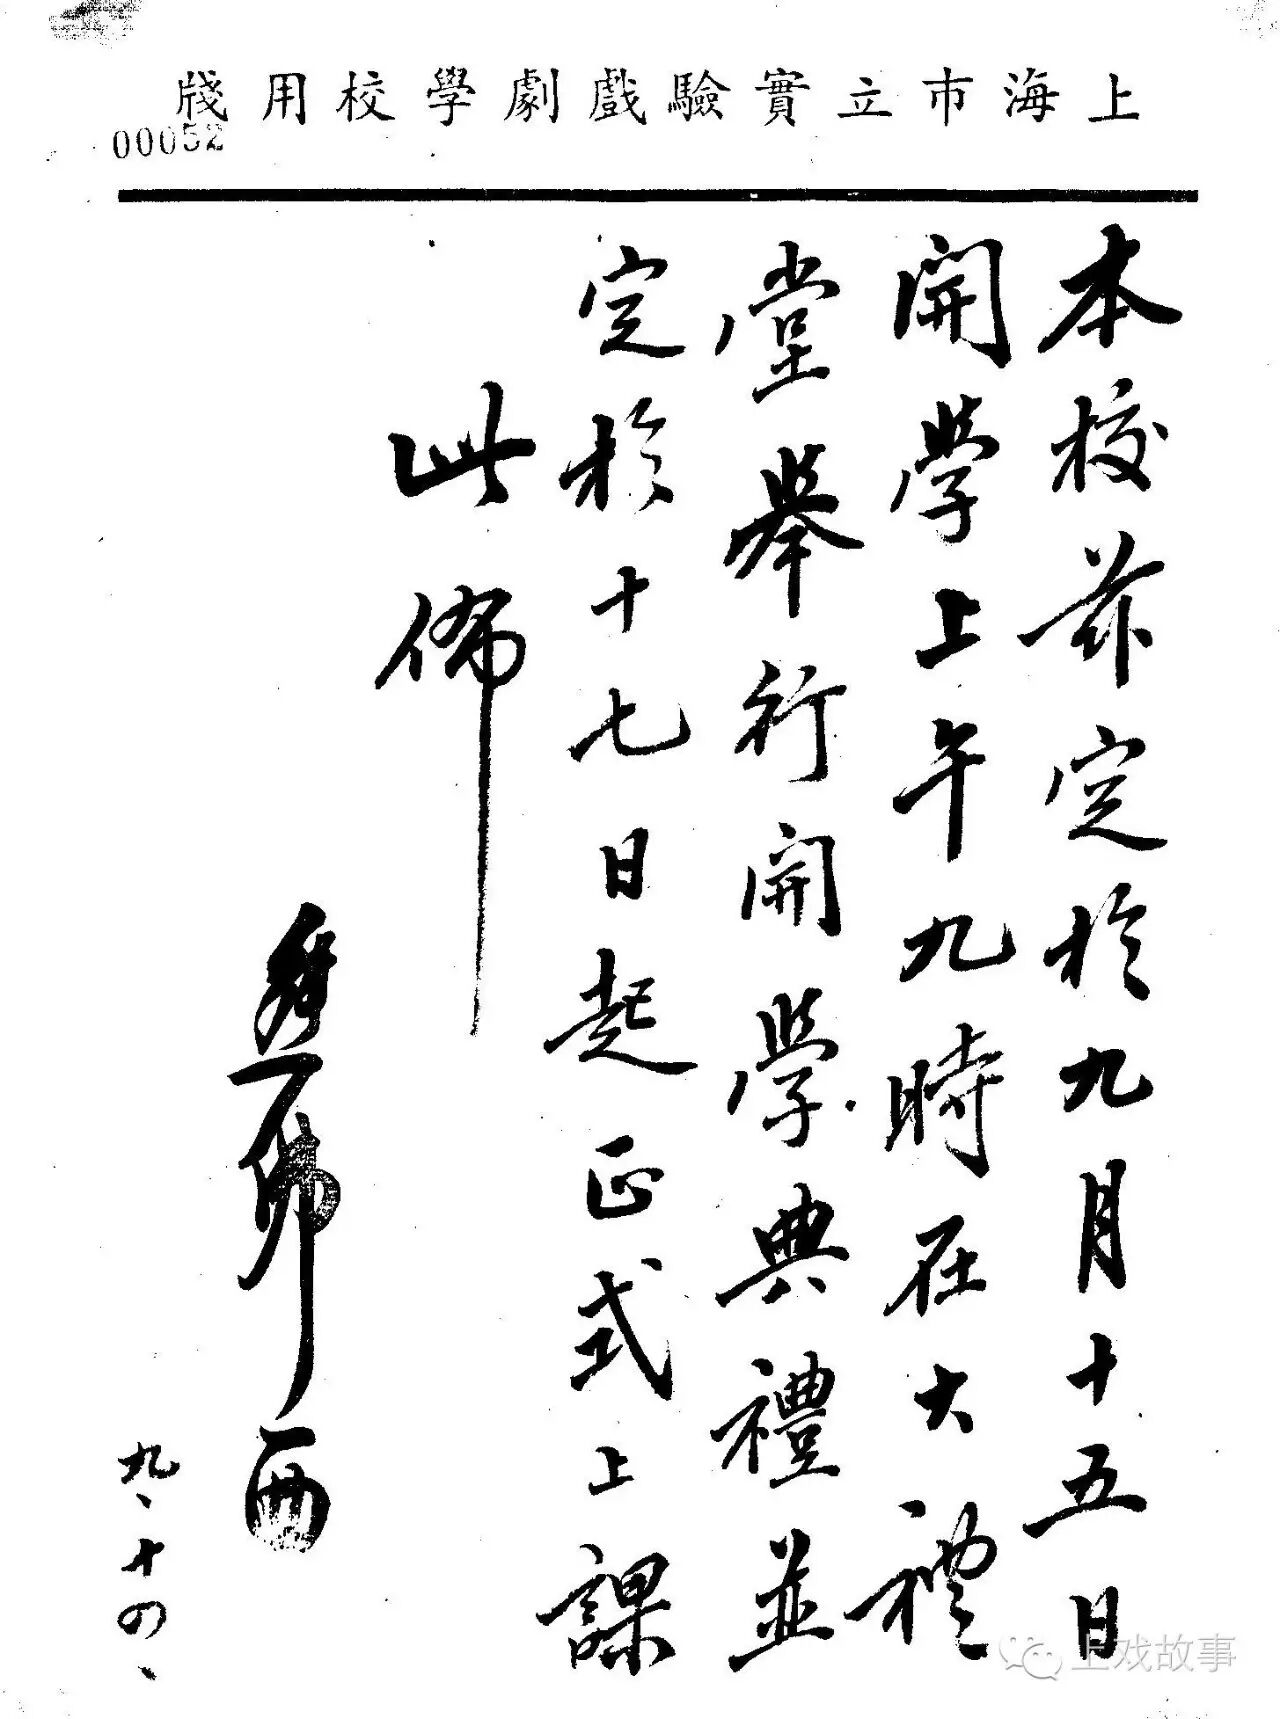 上海市立實驗戲劇學校用牋
00052
本校茲定於九月十五日
開學上午九時在大禮
堂舉行開學典禮並
定於十七日起正式上課
此佈
九、十四、
上戏故事